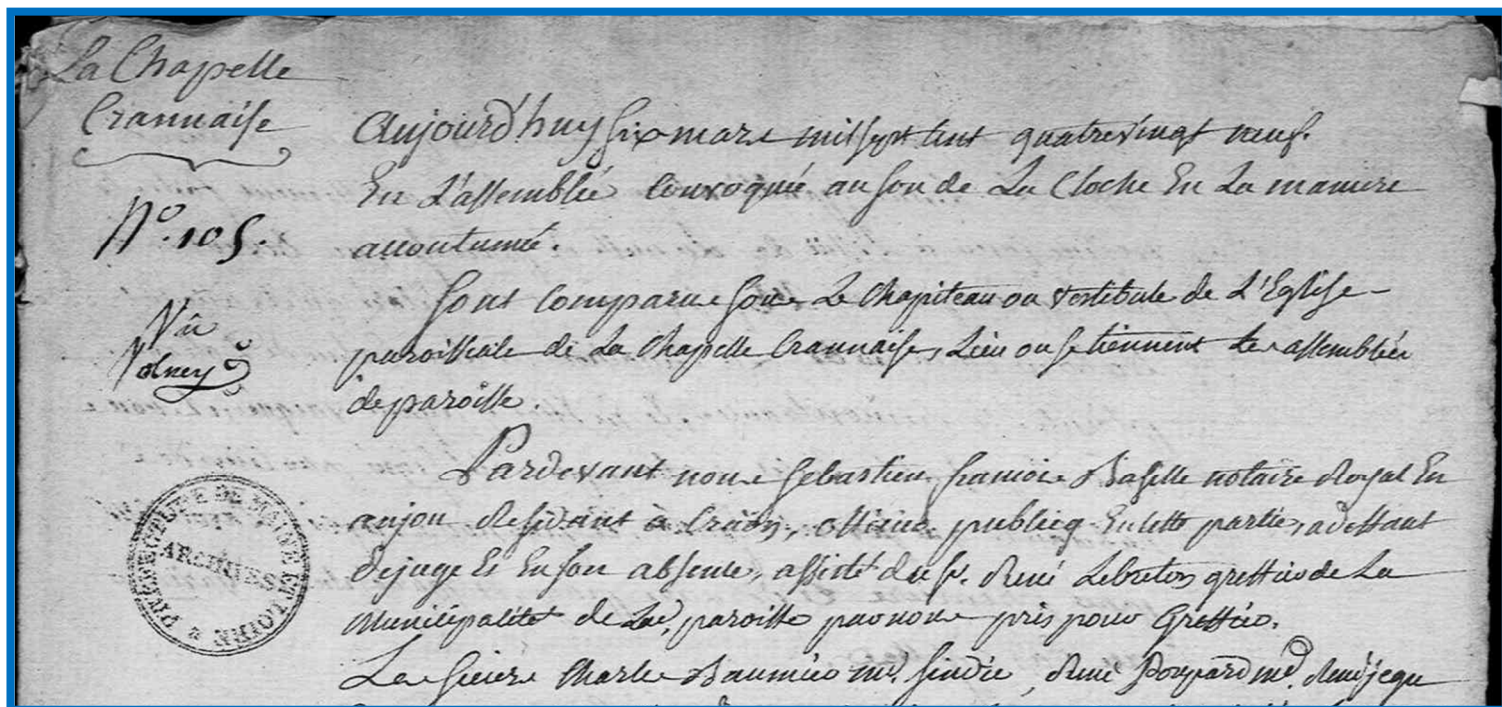 La Chapelle
Crannaise
N.° 105.
Vû
Volney
PREFECTURE DE MAINE ET LOIRE
ARCHIVES
Aujourd'huy six mars mil sept cent quatrevingt neuf.
En L'assemblée convoquée au son de La Cloche En La maniere
accoutumée.
Sont comparus sous Le Chapiteau ou vestibule de L'Eglise
paroissiale de La Chapelle Crannaise, Lieu ou se tiennent les assemblées
de paroisse.
Pardevant nous Sebastien francois notaire Royal En
anjou Residant à Craon, officier publicq En cette partie, adeffaut
de juge Et En son absence, assisté du s.r René Lebreton greffier de La
Municipalité de Lad. paroisse par nous pris pour Greffier.
Les sieurs Charles md. sindic, René Poupard md. René